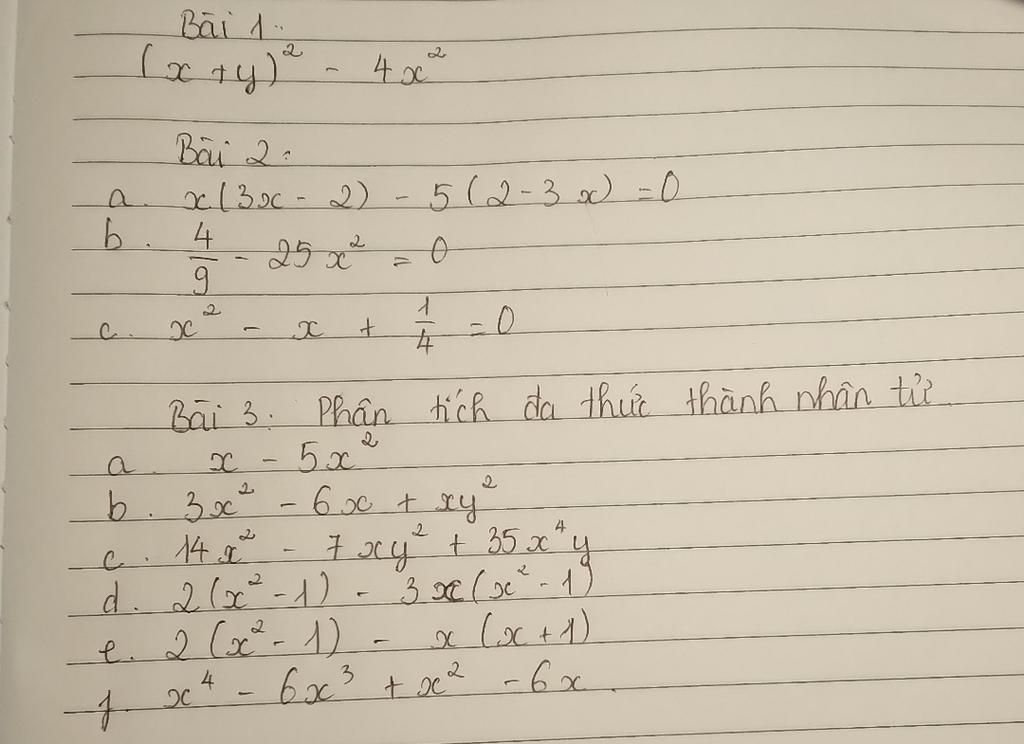 Bài 1:
(x + y)² - 4x²
Bài 2:
a. x(3x - 2) - 5(2 - 3x) = 0
b. 4/9 - 25x² = 0
c. x² - x + 1/4 = 0
Bài 3: Phân tích đa thức thành nhân tử
a. x - 5x²
b. 3x² - 6x + xy²
c. 14x² - 7xy² + 35x⁴y
d. 2(x² - 1) - 3x(x² - 1)
e. 2(x² - 1) - x(x + 1)
f. x⁴ - 6x³ + x² - 6x.